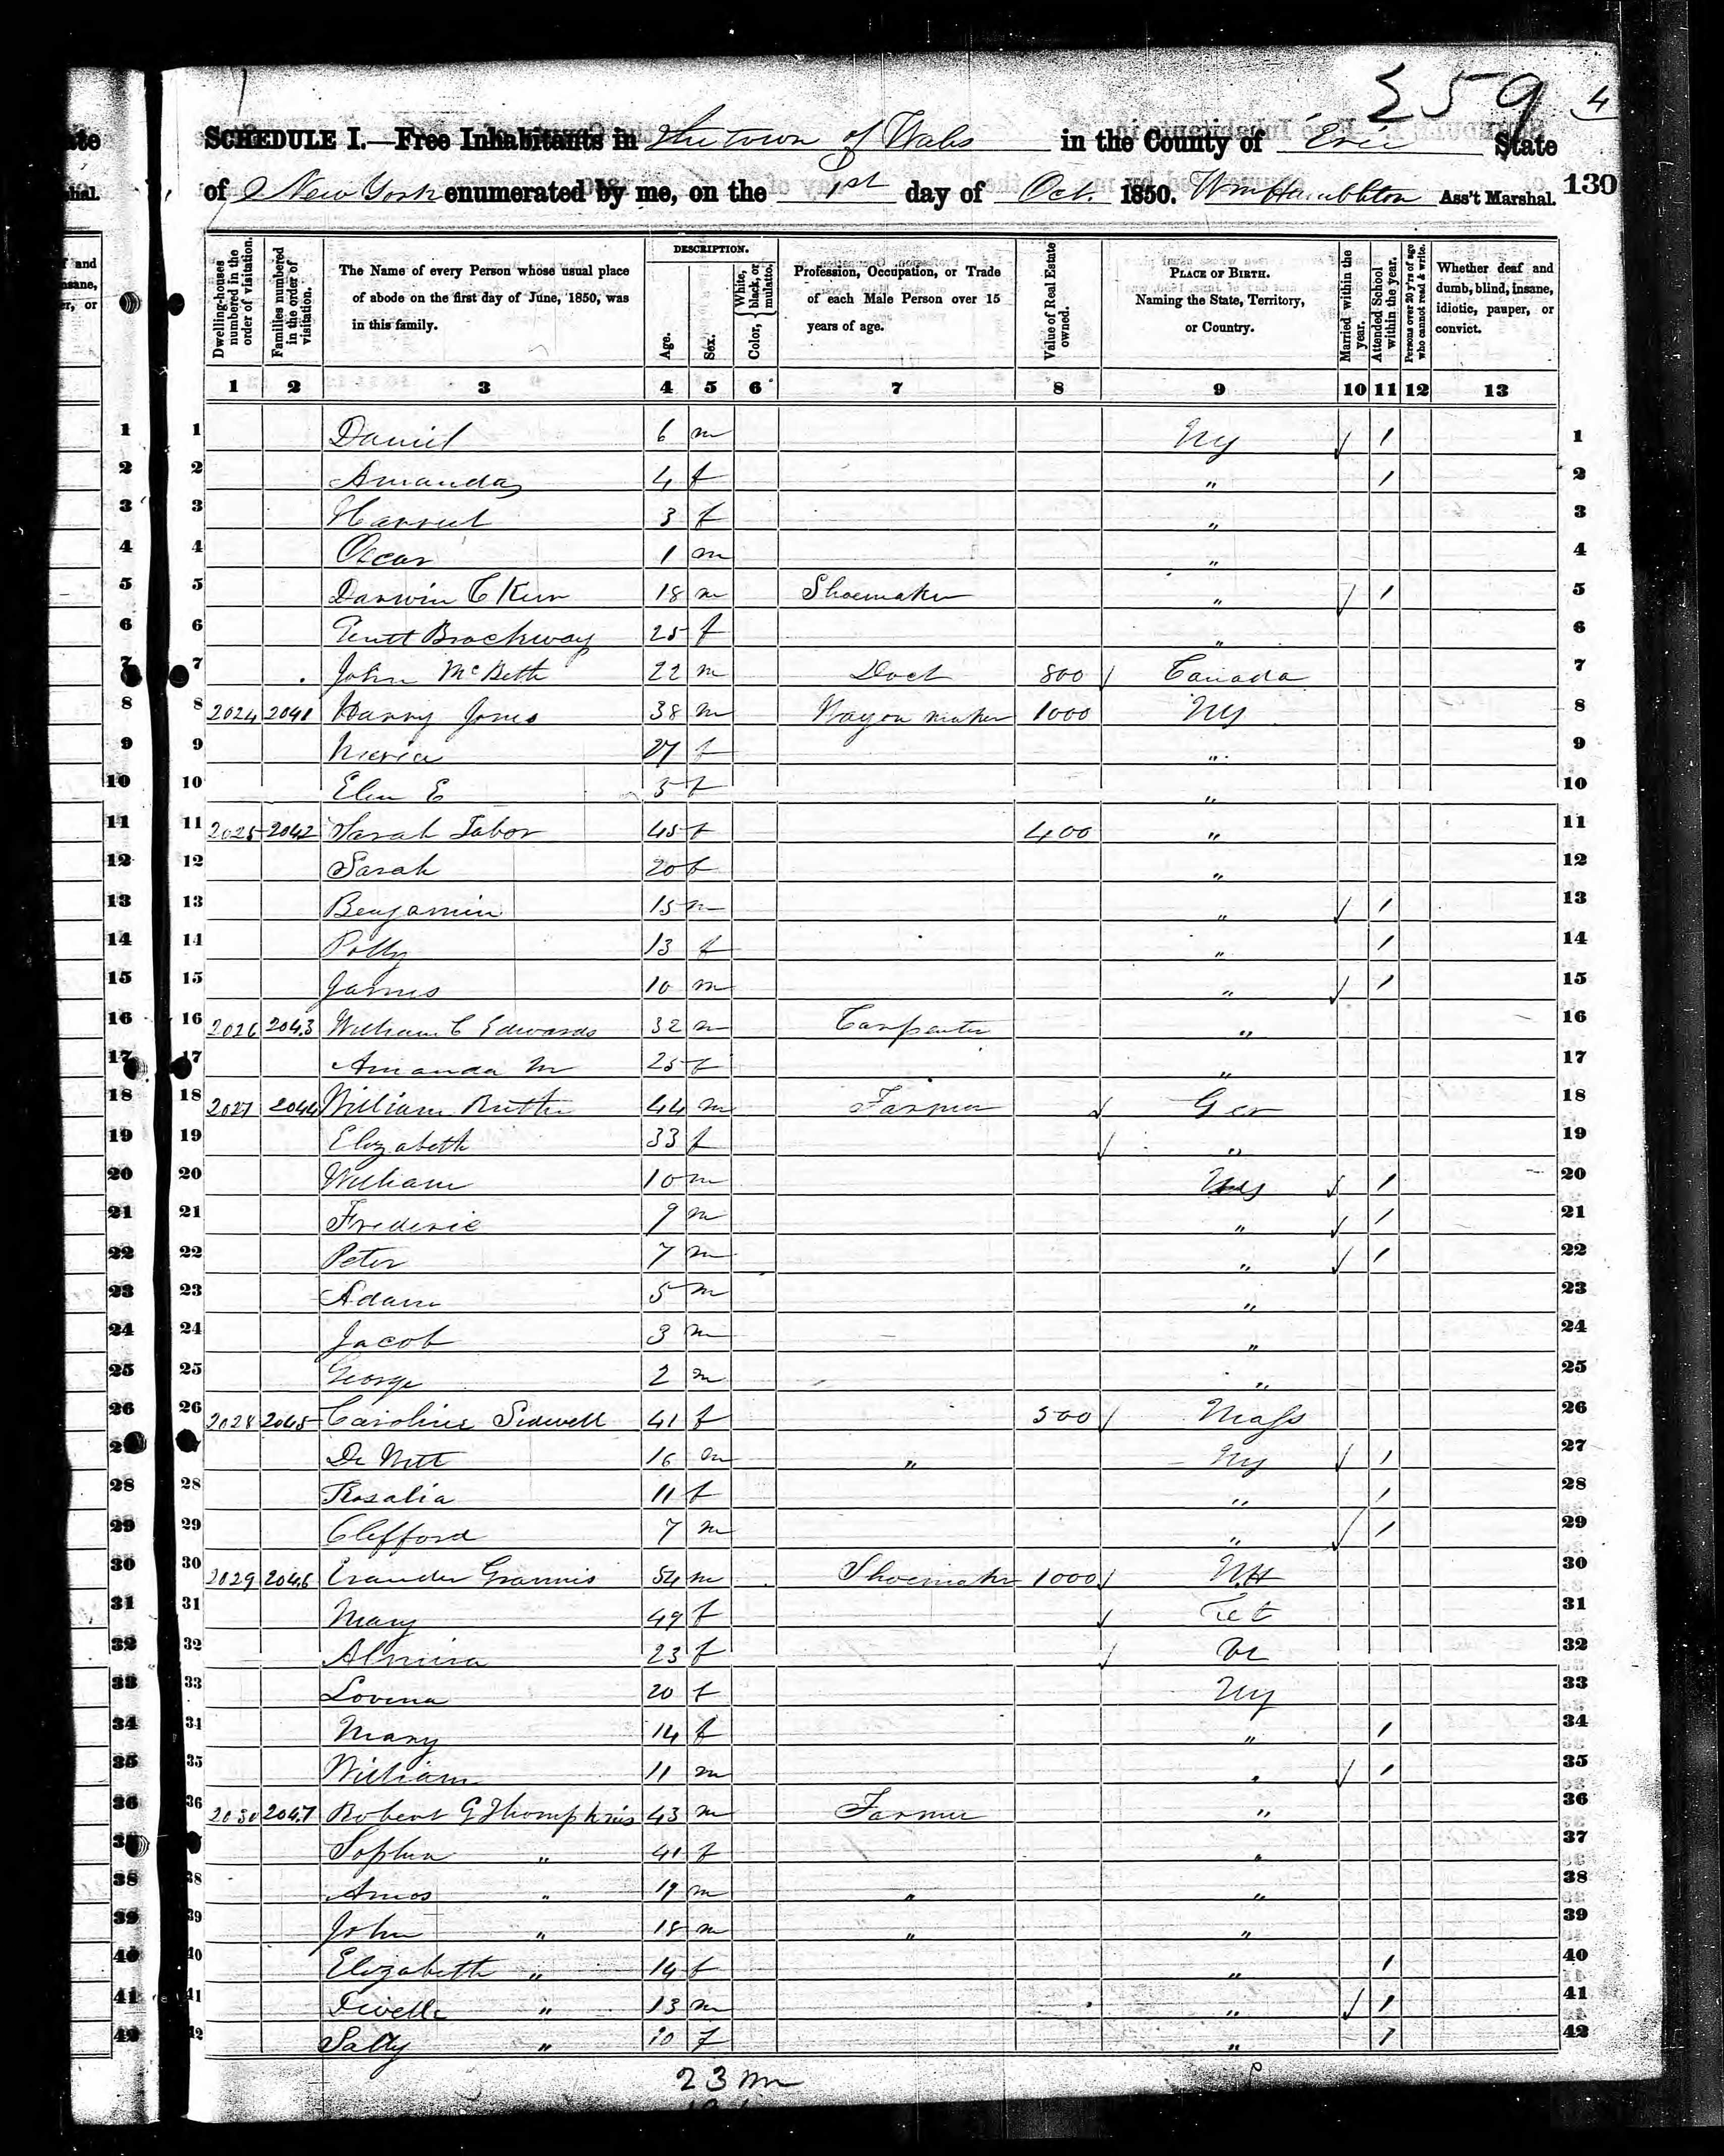 259 4
SCHEDULE I.—Free Inhabitants in the town of Wales in the County of Erie State
of New York enumerated by me, on the 1st day of Oct. 1850. Wm Hambleton Ass't Marshal. 130
Dwelling-houses numbered in the order of visitation.
Families numbered in the order of visitation.
The Name of every Person whose usual place of abode on the first day of June, 1850, was in this family.
DESCRIPTION.
Age.
Sex.
Color, White, black, or mulatto.
Profession, Occupation, or Trade of each Male Person over 15 years of age.
Value of Real Estate owned.
PLACE OF BIRTH. Naming the State, Territory, or Country.
Married within the year.
Attended School within the year.
Persons over 20 y'rs of age who cannot read & write.
Whether deaf and dumb, blind, insane, idiotic, pauper, or convict.
1 2 3 4 5 6 7 8 9 10 11 12 13
1 Daniel 6 m Ny / 1
2 Amanda 4 f " / 2
3 Harriet 3 f " 3
4 Oscar 1 m " 4
5 Darwin C 18 m Shoemaker " / 5
6 Brockway 25 f " 6
7 John McBeth 22 m Doct 800 Canada 7
8 2024 2041 Harry Jones 38 m Wagon maker 1000 Ny 8
9 Maria 27 f " 9
10 Elen E 5 f " 10
11 2025 2042 Sarah Tabor 45 f 400 " 11
12 Sarah 20 f " 12
13 Benjamin 15 m " / 13
14 Polly 13 f " / 14
15 James 10 m " / 15
16 2026 2043 William C Edwards 32 m Carpenter " 16
17 Amanda M 25 f " 17
18 2027 2044 William 44 m Farmer Ger 18
19 Elizabeth 33 f " 19
20 William 10 m Ny / 20
21 Frederic 9 m " / 21
22 Peter 7 m " / 22
23 Adam 5 m " 23
24 Jacob 3 m " 24
25 George 2 m " 25
26 2028 2045 Caroline Sidwell 41 f 500 Mass 26
27 De Witt 16 m " Ny / 27
28 Rosalia 11 f " / 28
29 Clifford 7 m " / 29
30 2029 2046 Evander Grannis 54 m Shoemaker 1000 N.H 30
31 Mary 49 f 31
32 Almira 23 f Vt 32
33 Lovina 20 f Ny 33
34 Mary 14 f " / 34
35 William 11 m " / 35
36 2030 2047 Robert G Thompkins 43 m Farmer " 36
37 Sophia " 41 f " 37
38 Amos " 19 m " " 38
39 John " 18 m " " 39
40 Elizabeth " 14 f " / 40
41 " 13 m " / 41
42 Sally " 10 f " / 42
23 m